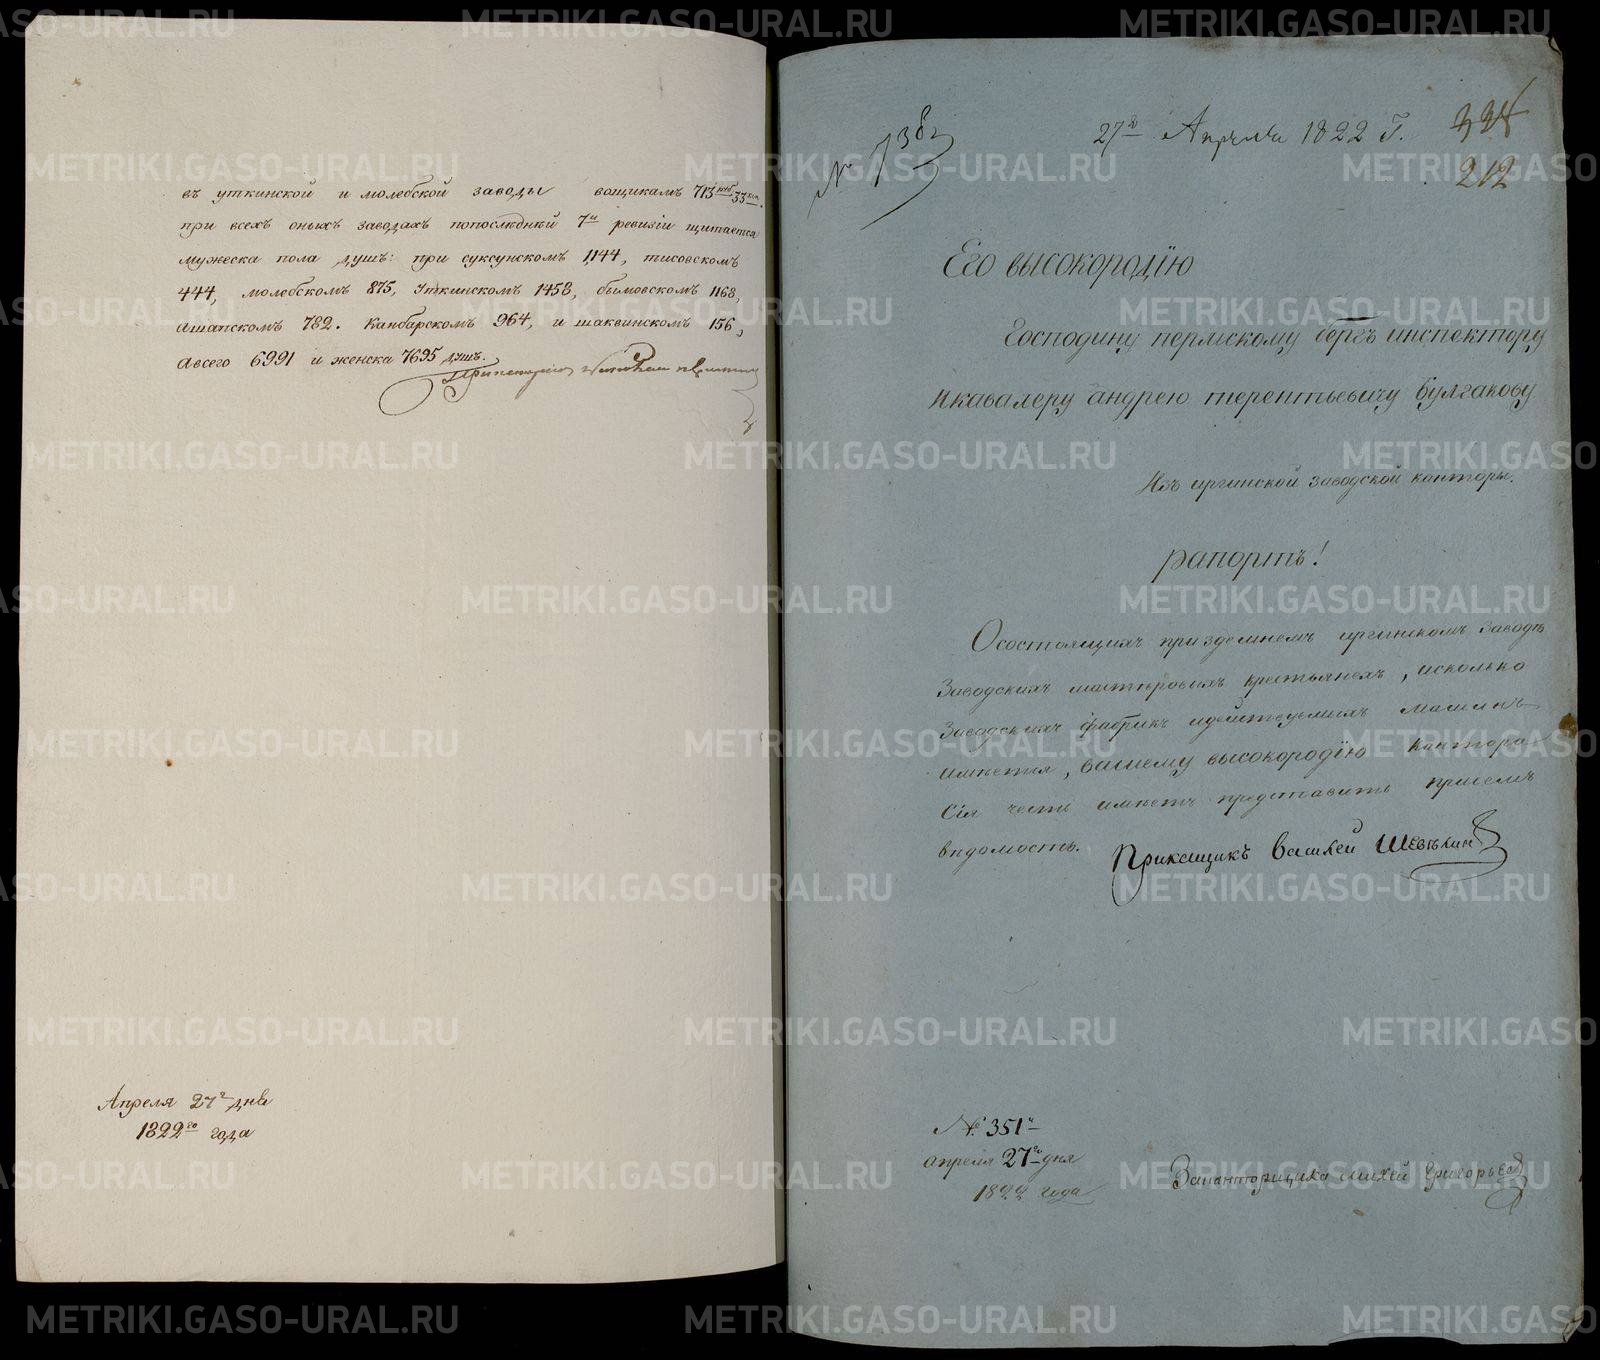 въ уткинской и молебской заводы вощикамъ 713 руб. 33 коп.
при всехъ оныхъ заводахъ попоследнѣй 7й ревизіи щитается
мужеска пола душъ: при суксунскомъ 1144, тисовскомъ
444, молебскомъ 875, Уткинскомъ 1458, бымовскомъ 1168,
ашапскомъ 782. Канбарскомъ 964, и шаквинскомъ 156,
авсего 6991 и женска 7695 душъ.
Апреля 27го дня
1822го года
№ 736
27го Апреля 1822 Г.
334
212
Его высокородїю
Господину пермскому бергъ инспектору
Икавалеру андрею терентьевичу булгакову
Изъ иргинской заводской канторы.
рапортъ!
Осостоящихъ приздешнемъ иргинскомъ заводѣ
Заводскихъ мастѣровыхъ крестьянехъ, исколько
Заводскихъ фабрикъ идействуемыхъ машинъ
имеется, вашему высокородїю кантора
Сія честь имѣетъ представить присемъ
ведомость.
Прикащикъ Василей Шевелин
№ 351й
апреля 27го дня
1822 года
Заканторщика Григорьев
METRIKI.GASO-URAL.RU